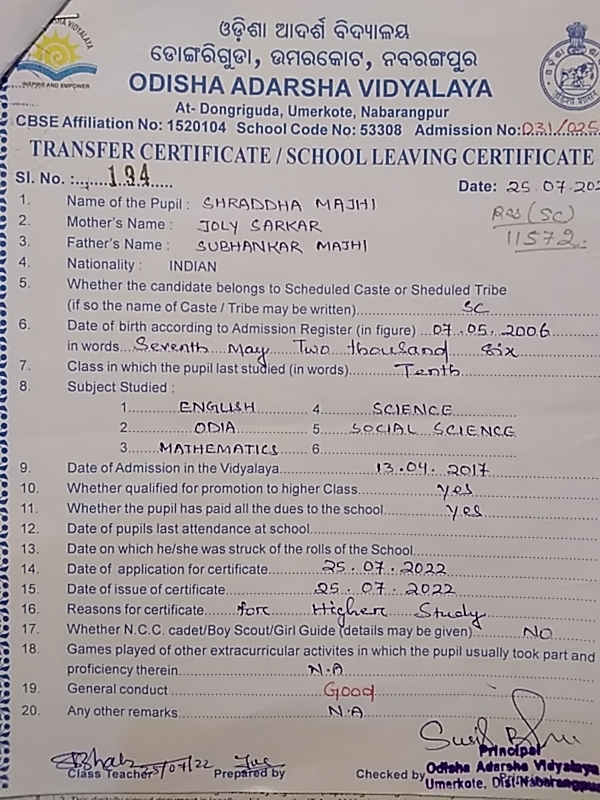 ଓଡ଼ିଶା ଆଦର୍ଶ ବିଦ୍ୟାଳୟ
ଡୋଙ୍ଗରିଗୁଡା, ଉମରକୋଟ, ନବରଙ୍ଗପୁର
ODISHA ADARSHA VIDYALAYA
INSPIRE AND EMPOWER
At- Dongriguda, Umerkote, Nabarangpur
CBSE Affiliation No: 1520104 School Code No: 53308 Admission No: 031/025
TRANSFER CERTIFICATE / SCHOOL LEAVING CERTIFICATE
Sl. No. :....194....
Date: 25.07.202
1. Name of the Pupil : SHRADDHA MAJHI
(SC)
2. Mother's Name : JOLY SARKAR
11572
3. Father's Name : SUBHANKAR MAJHI
4. Nationality : INDIAN
5. Whether the candidate belongs to Scheduled Caste or Sheduled Tribe
(if so the name of Caste / Tribe may be written) SC
6. Date of birth according to Admission Register (in figure) 07.05.2006
in words Seventh May Two thousand six
7. Class in which the pupil last studied (in words) Tenth
8. Subject Studied :
1. ENGLISH 4. SCIENCE
2. ODIA 5. SOCIAL SCIENCE
3. MATHEMATICS 6.
9. Date of Admission in the Vidyalaya 13.04.2017
10. Whether qualified for promotion to higher Class yes
11. Whether the pupil has paid all the dues to the school yes
12. Date of pupils last attendance at school
13. Date on which he/she was struck of the rolls of the School
14. Date of application for certificate 25.07.2022
15. Date of issue of certificate 25.07.2022
16. Reasons for certificate for Higher Study
17. Whether N.C.C. cadet/Boy Scout/Girl Guide (details may be given) NO
18. Games played of other extracurricular activites in which the pupil usually took part and
proficiency therein N.A
19. General conduct Good
20. Any other remarks N.A
25/07/22
Class Teacher Prepared by Checked by
Principal
Odisha Adarsha Vidyalaya
Umerkote, Dist-Nabarangpur